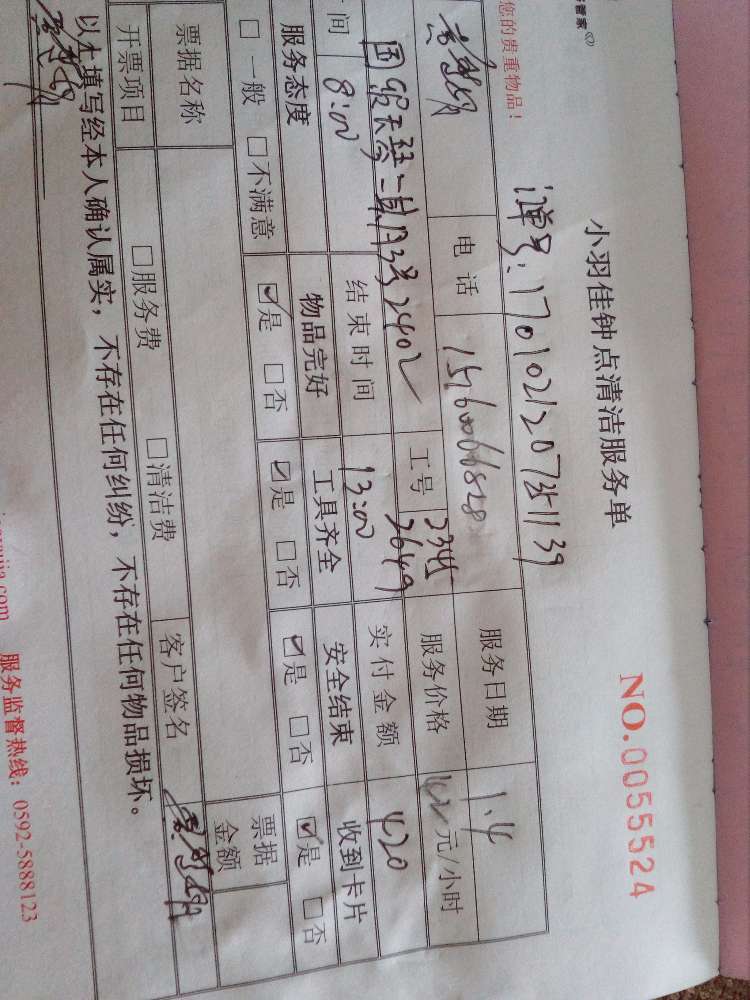 管家
小羽佳钟点清洁服务单
NO.0055524
您的贵重物品！
单号:1701021207351139
电话 15160066828 服务日期 1.4
国贸天琴二期 3号2402 工号 2345 2649 服务价格 42 元/小时
间 8:00 结束时间 13:00 实付金额 420
服务态度 物品完好 工具齐全 安全结束 收到卡片
□一般 □不满意 ☑是 □否 ☑是 □否 ☑是 □否 ☑是 □否
票据名称 票据金额
开票项目 □服务费 □清洁费 客户签名
以上填写经本人确认属实，不存在任何纠纷，不存在任何物品损坏。
服务监督热线：0592-5888123